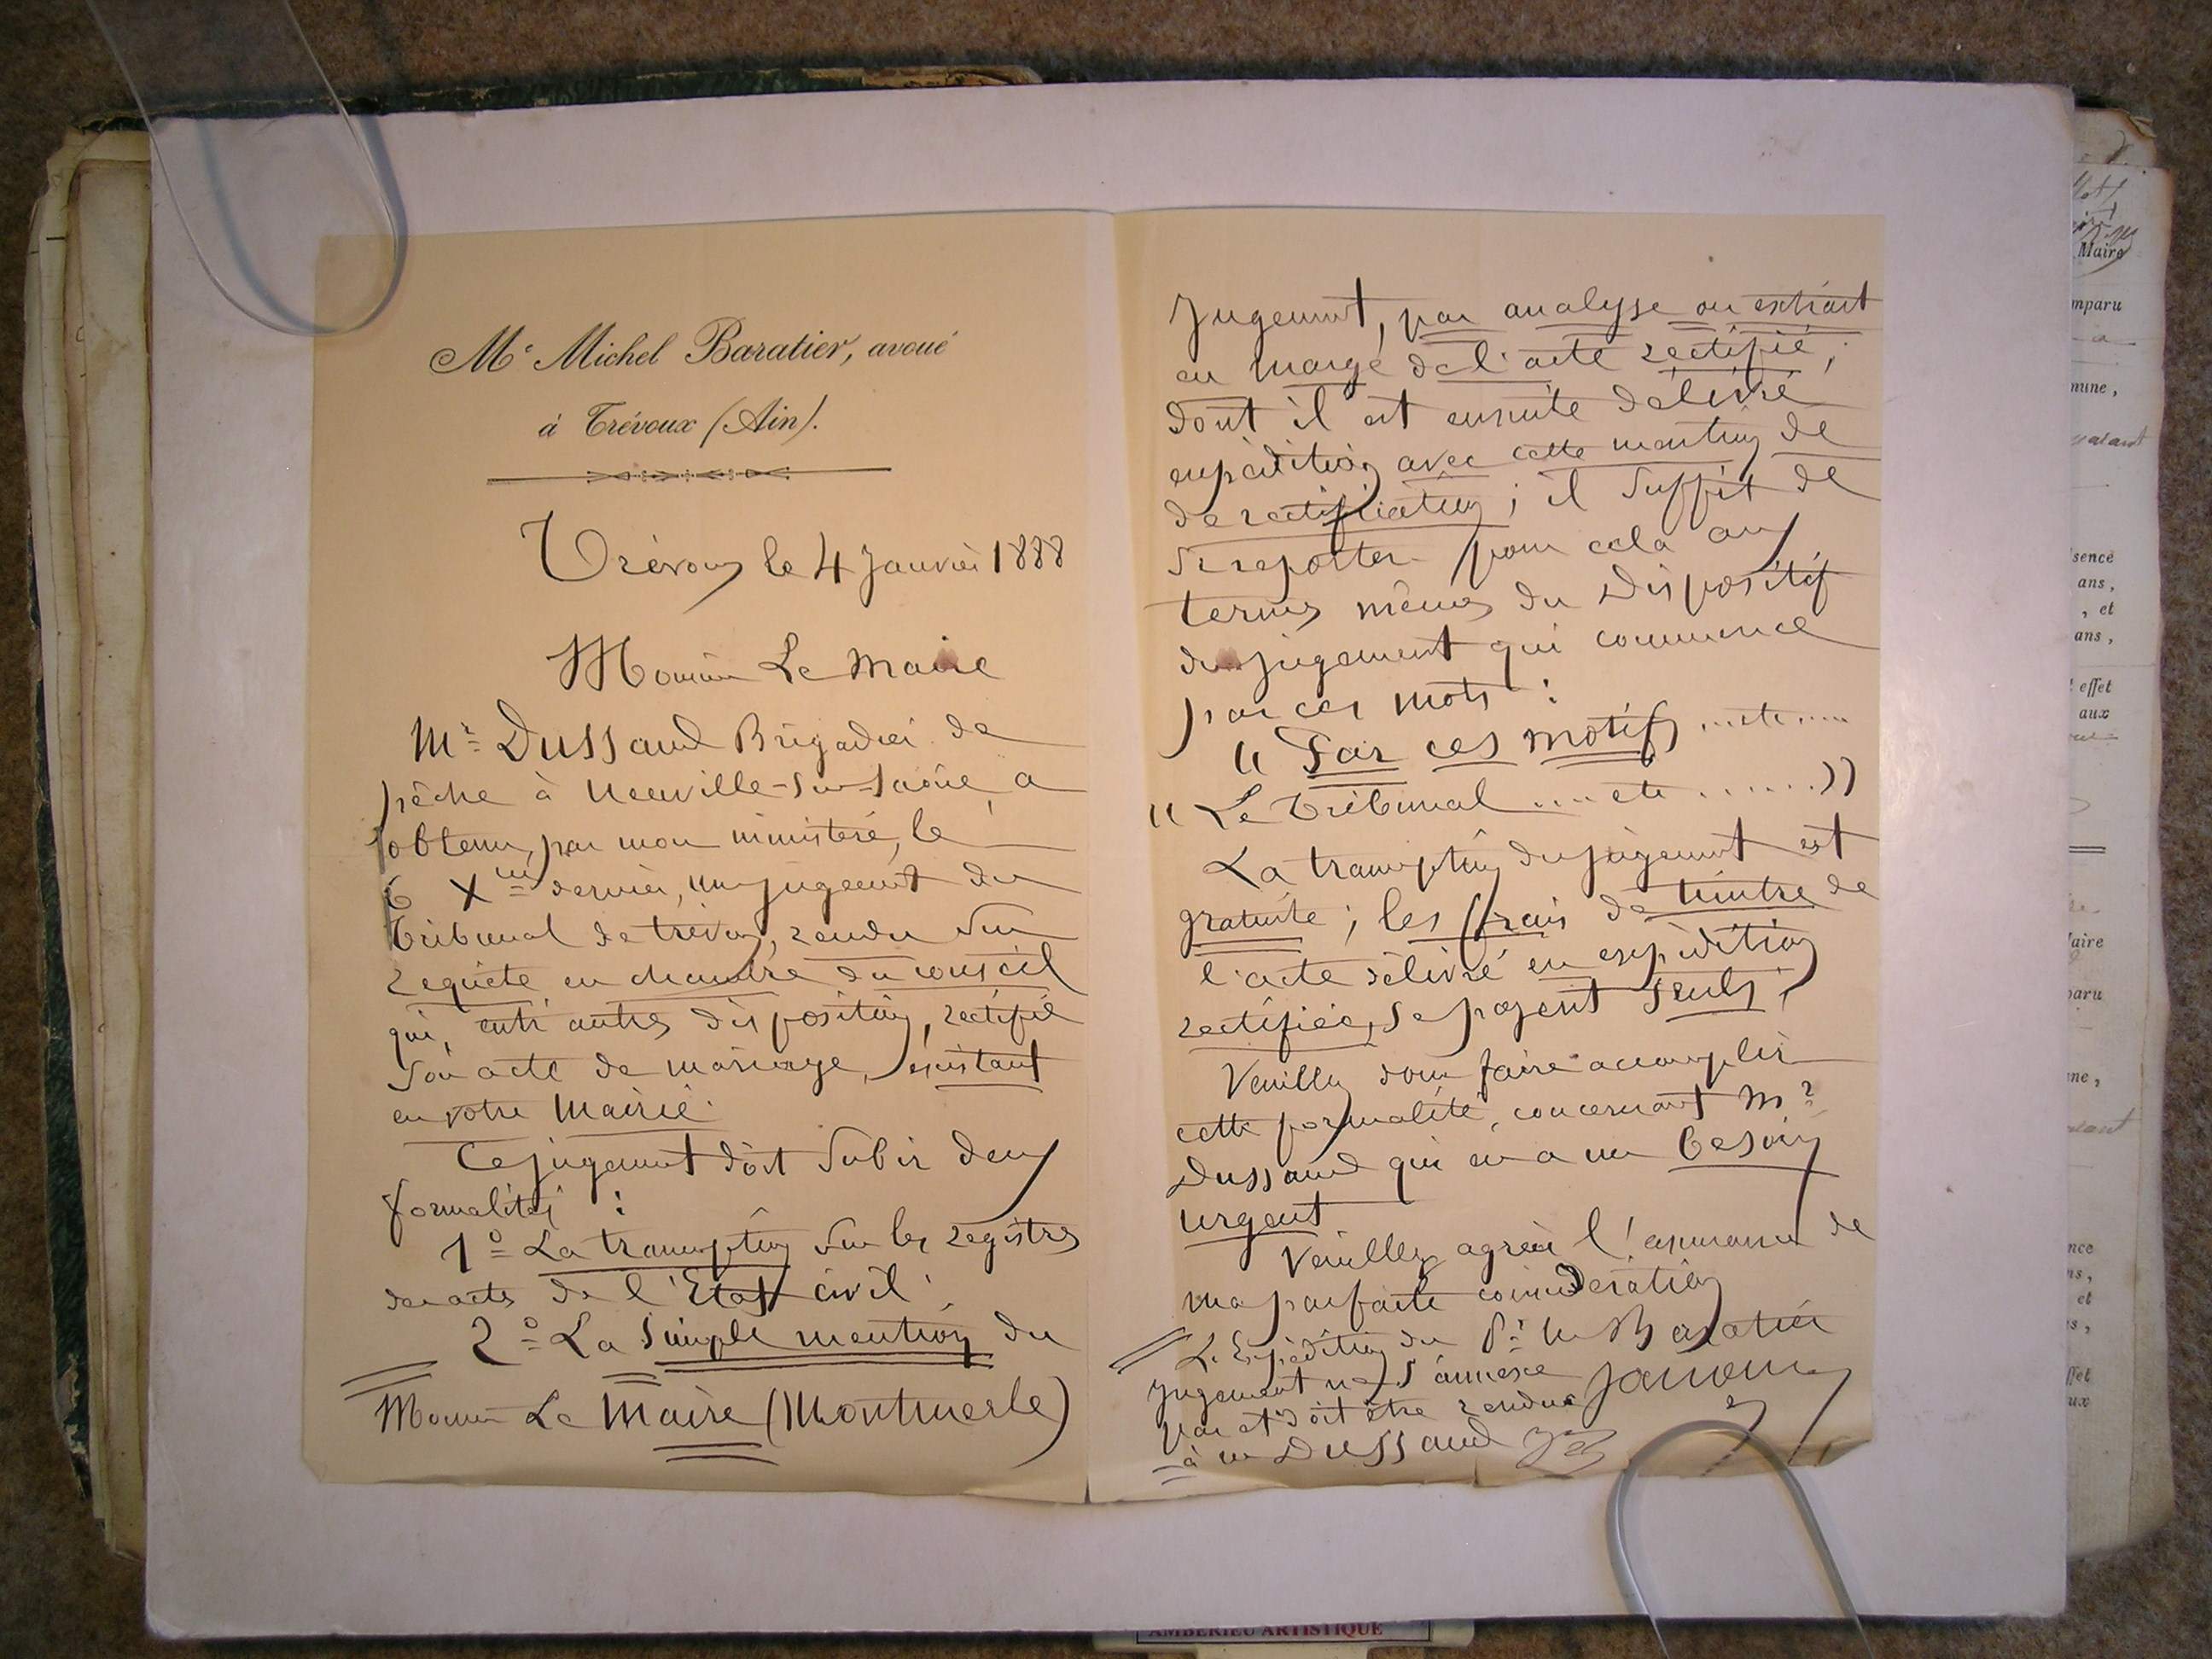 Me Michel Baratier, avoué
à Trévoux (Ain).
Trévoux le 4 Janvier 1888
Monsieur Le Maire
Mr Dussaud Brigadier de
pêche à Neuville-sur-Saône, a
obtenu, par mon ministère, le
6 Xbre dernier, un jugement du
Tribunal de trévoux, rendu sur
requête en chambre du conseil
qui, entr'autres dispositions, rectifie
son acte de mariage, existant
en votre Mairie.
Ce jugement doit subir deux
formalités :
1o La transcription sur les registres
des actes de l'Etat civil.
2o La simple mention du
Monsieur Le Maire (Montmerle)
Jugement, par analyse ou extrait
en marge de l'acte rectifié,
dont il est ensuite délivré
expédition avec cette mention de
de rectification ; il suffit de
se reporter pour cela aux
termes mêmes du Dispositif
du jugement qui commence
par ces mots :
" Par ces motifs ...etc....
" Le Tribunal .... etc ......."
La transcription du jugement est
gratuite ; les frais de timbre de
l'acte délivré en expédition
rectifiée, se payent seuls ;
Veuillez donc faire accomplir
cette formalité, concernant Mr
Dussaud qui en a un besoin
urgent
Veuillez agréer l'assurance de
ma parfaite considération
Baratier
L'Expédition du
jugement ne s'annexe
pas et doit être rendue
à m Dussaud
Maire
mparu
mune,
sence
ans,
, et
ans,
effet
aux
aire
paru
ne,
nce
ns,
et
s,
ffet
ux
AMBERIEU ARTISTIQUE